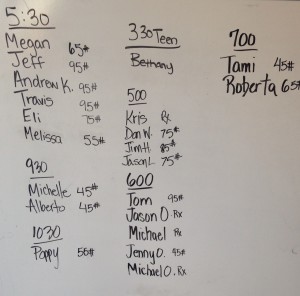 5:30
Megan 65#
Jeff 95#
Andrew K. 95#
Travis 95#
Eli 75#
Melissa 55#
930
Michelle 45#
Alberto 45#
1030
Poppy 55#
330 Teen
Bethany
500
Kris Rx
Dan W. 75#
Jim H. 85#
Jason L. 75#
600
Tom 95#
Jason O. Rx
Michael Rx
Jenny O. 45#
Michael O. Rx
700
Tami 45#
Roberta 65#